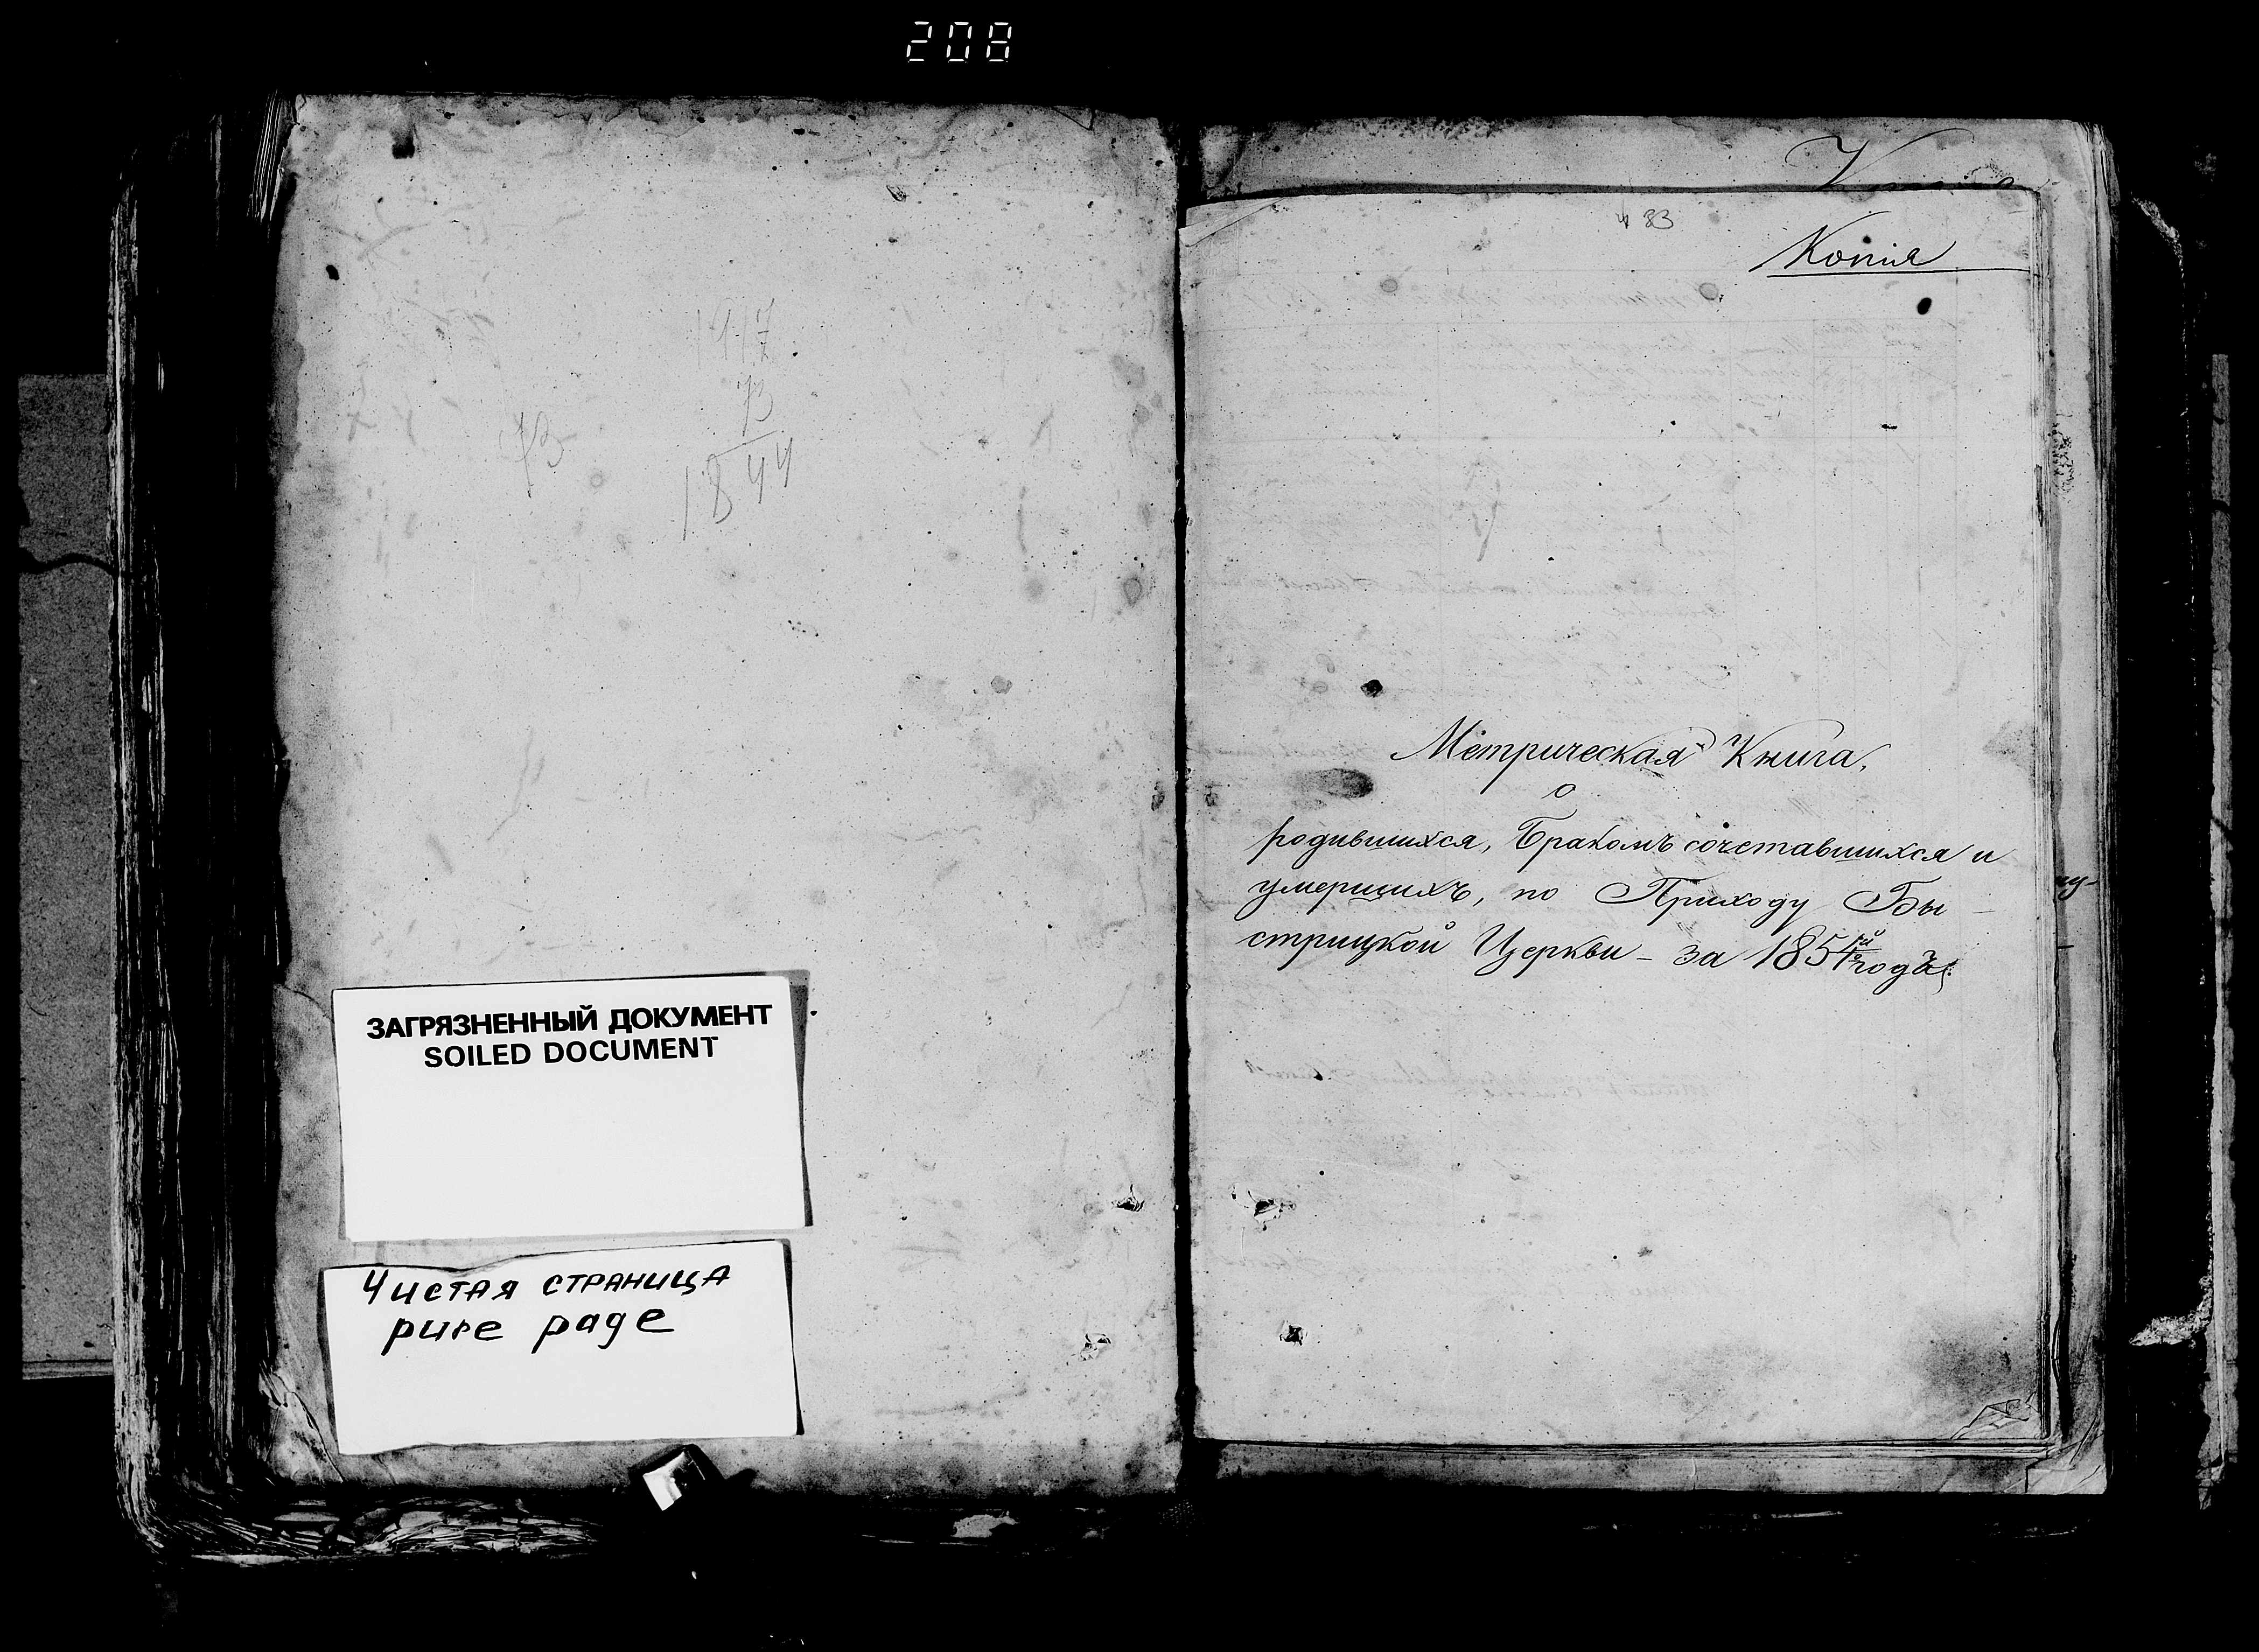 208
1917
73
73
1844
ЗАГРЯЗНЕННЫЙ ДОКУМЕНТ
SOILED DOCUMENT
Чистая страница
pure page
83
Копія
Метрическая Книга,
о
родившихся, Бракомъ сочетавшихся и
умершихъ, по Приходу Бы-
стрицкой Церкви - за 1851й годъ.